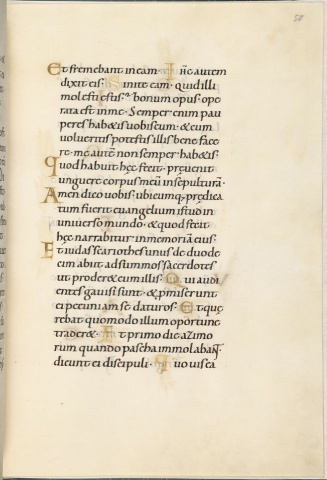 50
Et fremebant in eam. Ihc autem
dixit eis. Sinite eam. Quid illi
molesti estis? bonum opus ope
rata est in me. Semper enim pau
peres habetis uobiscum. & cum
uolueritis potestis illis bene face
re. me autē non semper habetis.
quod habuit hęc fecit. pręuenit
unguere corpus meū in sepulturā.
Amen dico uobis. ubicumq; prędica
tum fuerit euangelium istud in
uniuerso mundo. & quod fecit
hęc narrabitur in memoriā eius.
Et iudas scariothes unus de duode
cim abiit ad summos sacerdotes
ut proderet eum illis. Qui audi
entes gauisi sunt. & pmiserunt
ei pecuniam se daturos. Et quę
rebat quomodo illum oportune
traderet. Et primo die azimo
rum quando pascha immolabant
dicunt ei discipuli. Quo uis ea